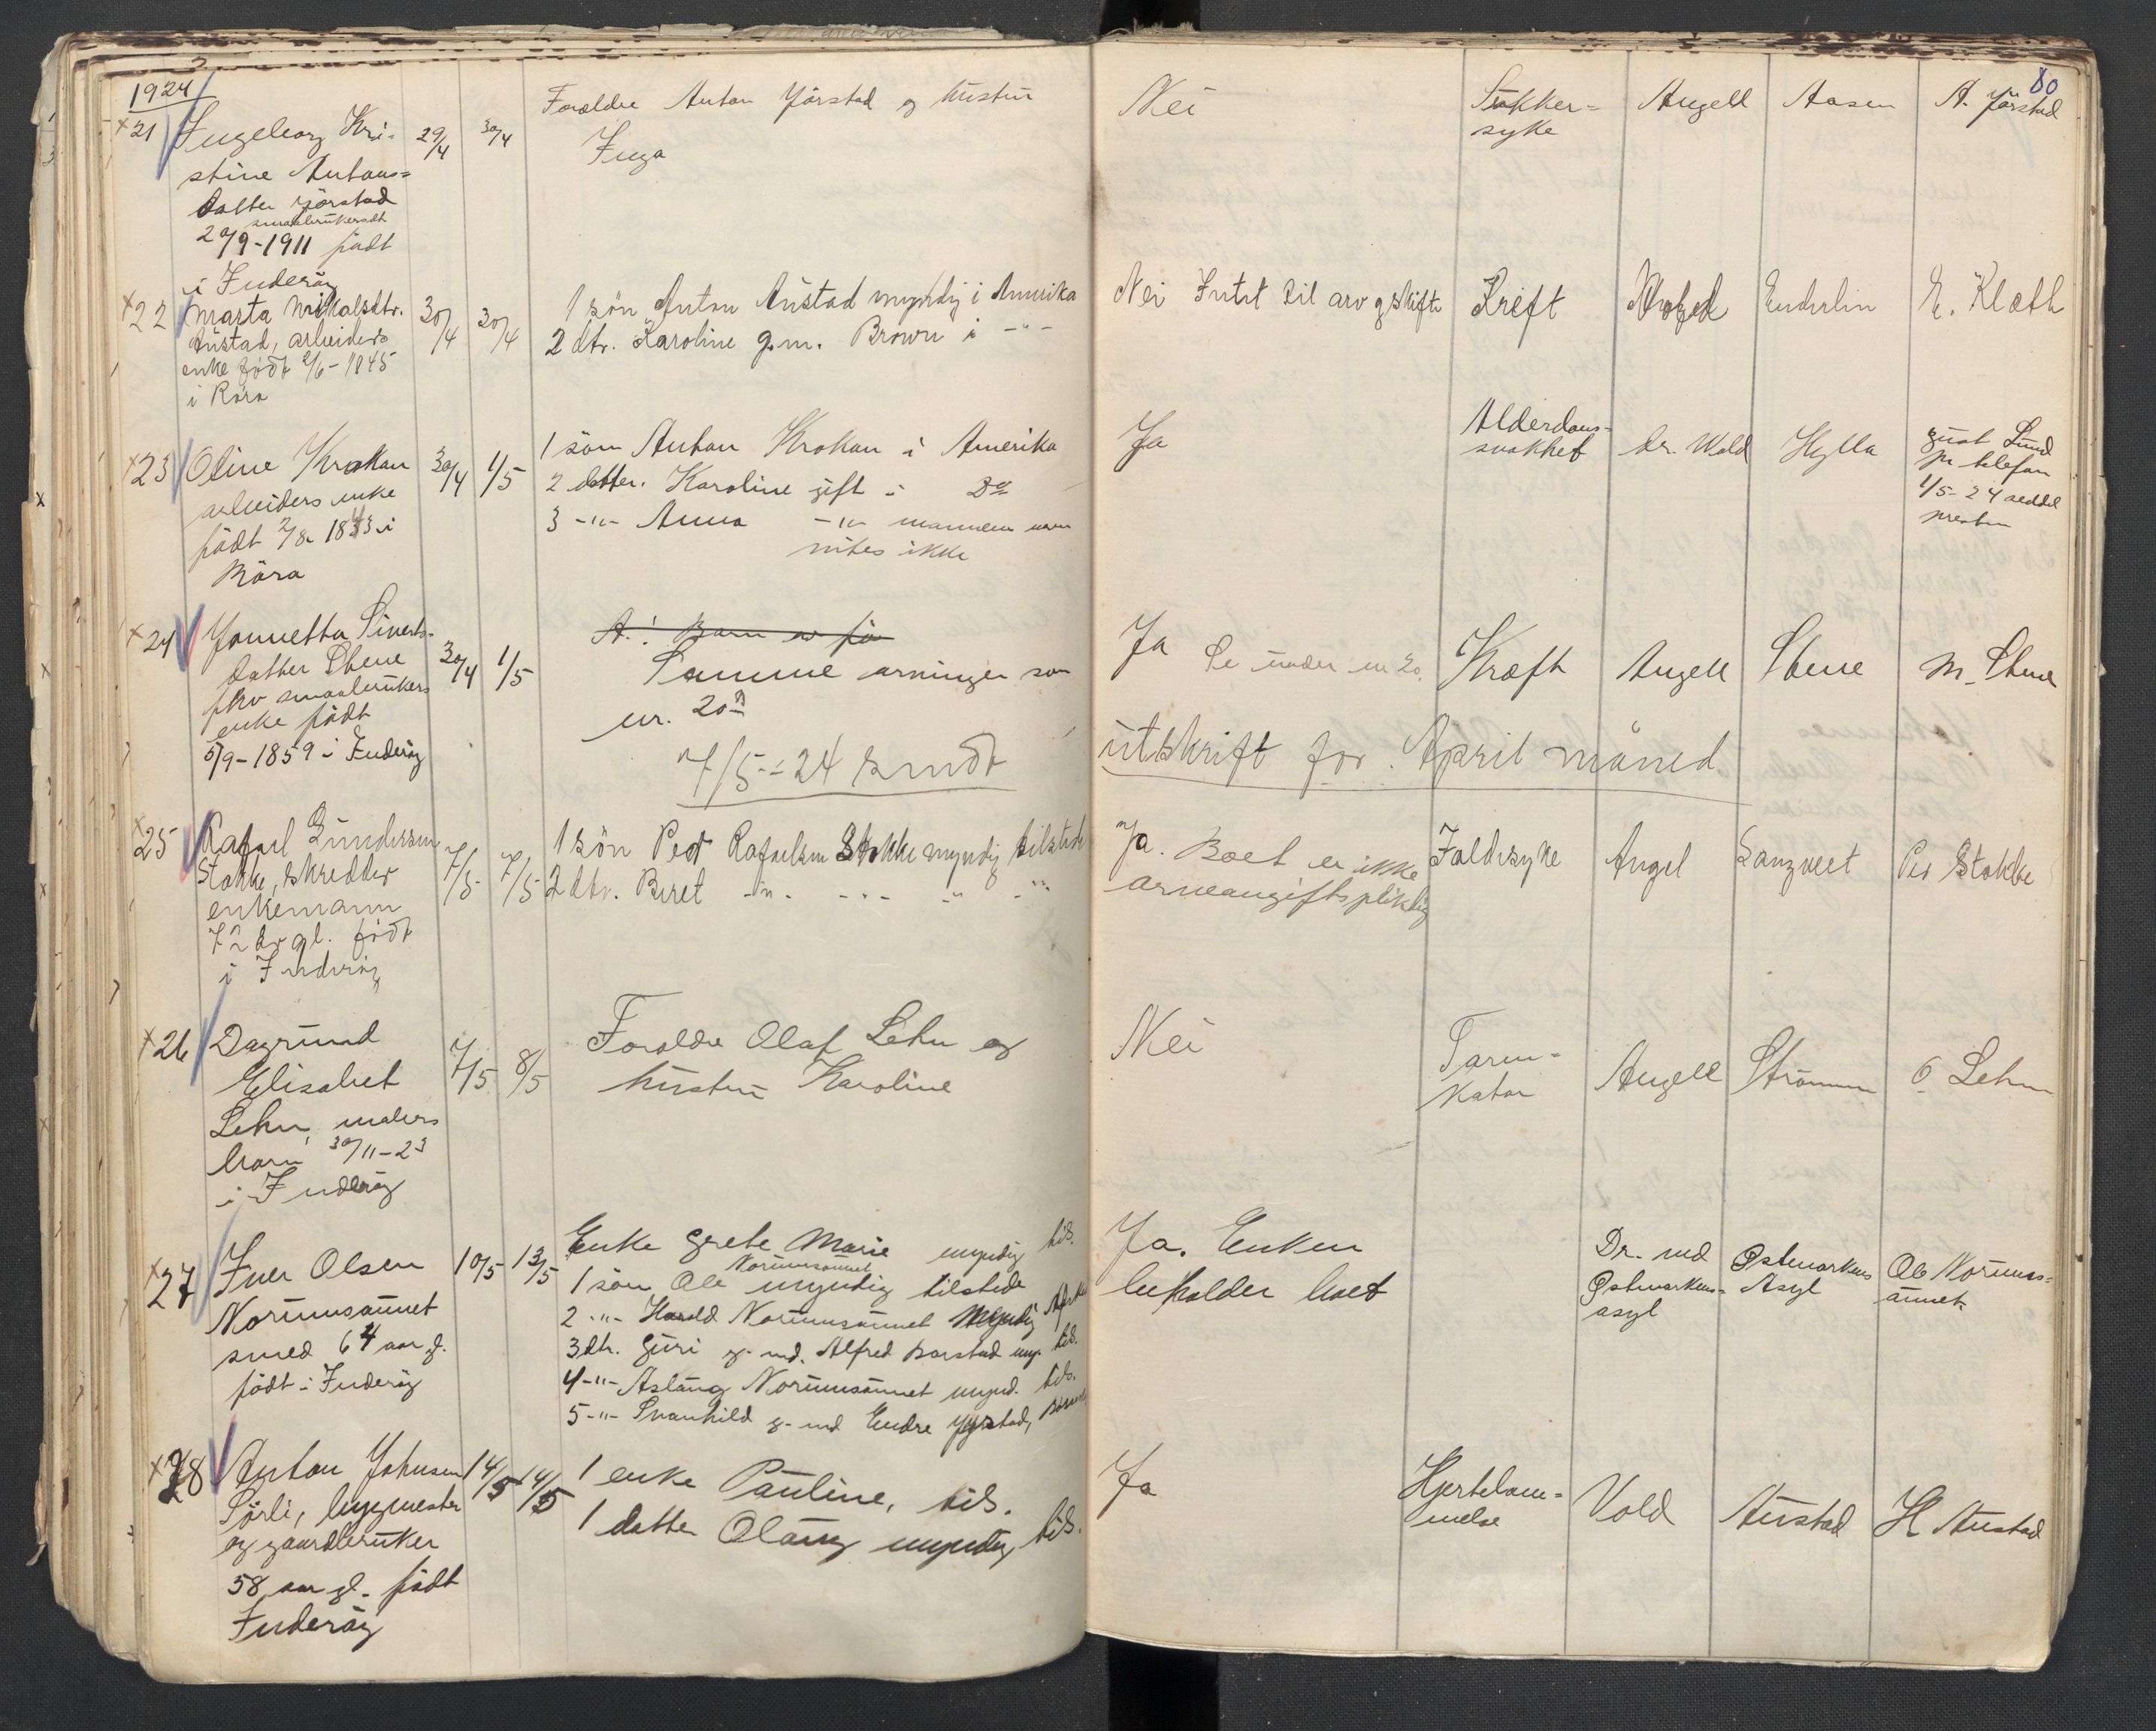 1924
80
21 Ingeborg Kri-
stine Antons-
datter Jörstad
smaabrukersdt
20/9-1911 födt
i Inderöy
29/4 30/4
Foreldre Anton Jörstad og hustru
Inga
Nei
Sukker-
syke
Angell
Aasen
A. Jörstad
22 Marta Nikolsdtr.
Austad, arbeiders
enke født 2/6-1845
i Röra
30/4 30/4
1 sön Anton Austad myndig i Amerika
2 dtr. Karoline g.m. Brown i -"-
Nei Intet til arv og skifte
Kreft
E. Kleth
23 Oline Krokan
arbeiders enke
födt 2/8 1833 i
Röra
30/4 1/5
1 sön Anton Krokan i Amerika
2 datter. Karoline gift i Do
3 -"- Anna -"- mannens navn
vites ikke
Ja
Alderdoms-
svakhet
Dr. Wold
Hylla
Gust Lund
pr telefon
1/5-24 seddel
presten
24 Jonnetta Siverts-
datter Stene
fhv smaabrukers
enke födt
5/9-1859 i Inderöy
30/4 1/5
A.! Barn av fö
Samme arvinger som
nr. 20
Ja Se under nr 20.
Kræft
Angell
Stene
M. Stene
7/5-24 sendt
utskrift for April måned
25 Rafael Gundersen
Stokke, skredder
enkemann
72 år gl. født
i Inderöy
7/5 7/5
1 sön Peder Rafaelsen Stokke myndig tilstede
2 dtr. Beret -"- -"- -"-
Ja. Boet er ikke
arveavgiftspliktig
Faldesyke
Angel
Langveet
Per Stokke
26 Dagrund
Elisabet
Lehn, malers
barn 30/11-23
i Inderöy
7/5 8/5
Foreldre Olaf Lehn og
hustru Karoline
Nei
Tarm-
katar
Angell
Strömmen
O Lehn
27 Iver Olsen
Norumsaunet
smed 64 aar g.
födt i Inderöy
10/5 13/5
Enke Grete Marie myndig tils.
Norumsaunet
1 sön Ole myndig tilstede
2 -"- Harald Norumsaunet myndig
3 dtr. Guri g. md. Alfred Barstad myn. tils.
4 -"- Aslaug Norumsaunet mynd. tils.
5 -"- Svanhild g. md Endre Jystad,
Ja. Enken
beholder boet
Dr. ved
Østmarkens-
asyl
Østmarkens
Asyl
Ole Norums-
aunet
28 Anton Johnsen
Sörli, byggmester
og gaardbruker
58 aar gl. födt
Inderöy
14/5 14/5
1 enke Pauline, tils.
1 datter Olaug myndig tils.
Ja
Hjertelam-
melse
Vold
Austad
H Austad